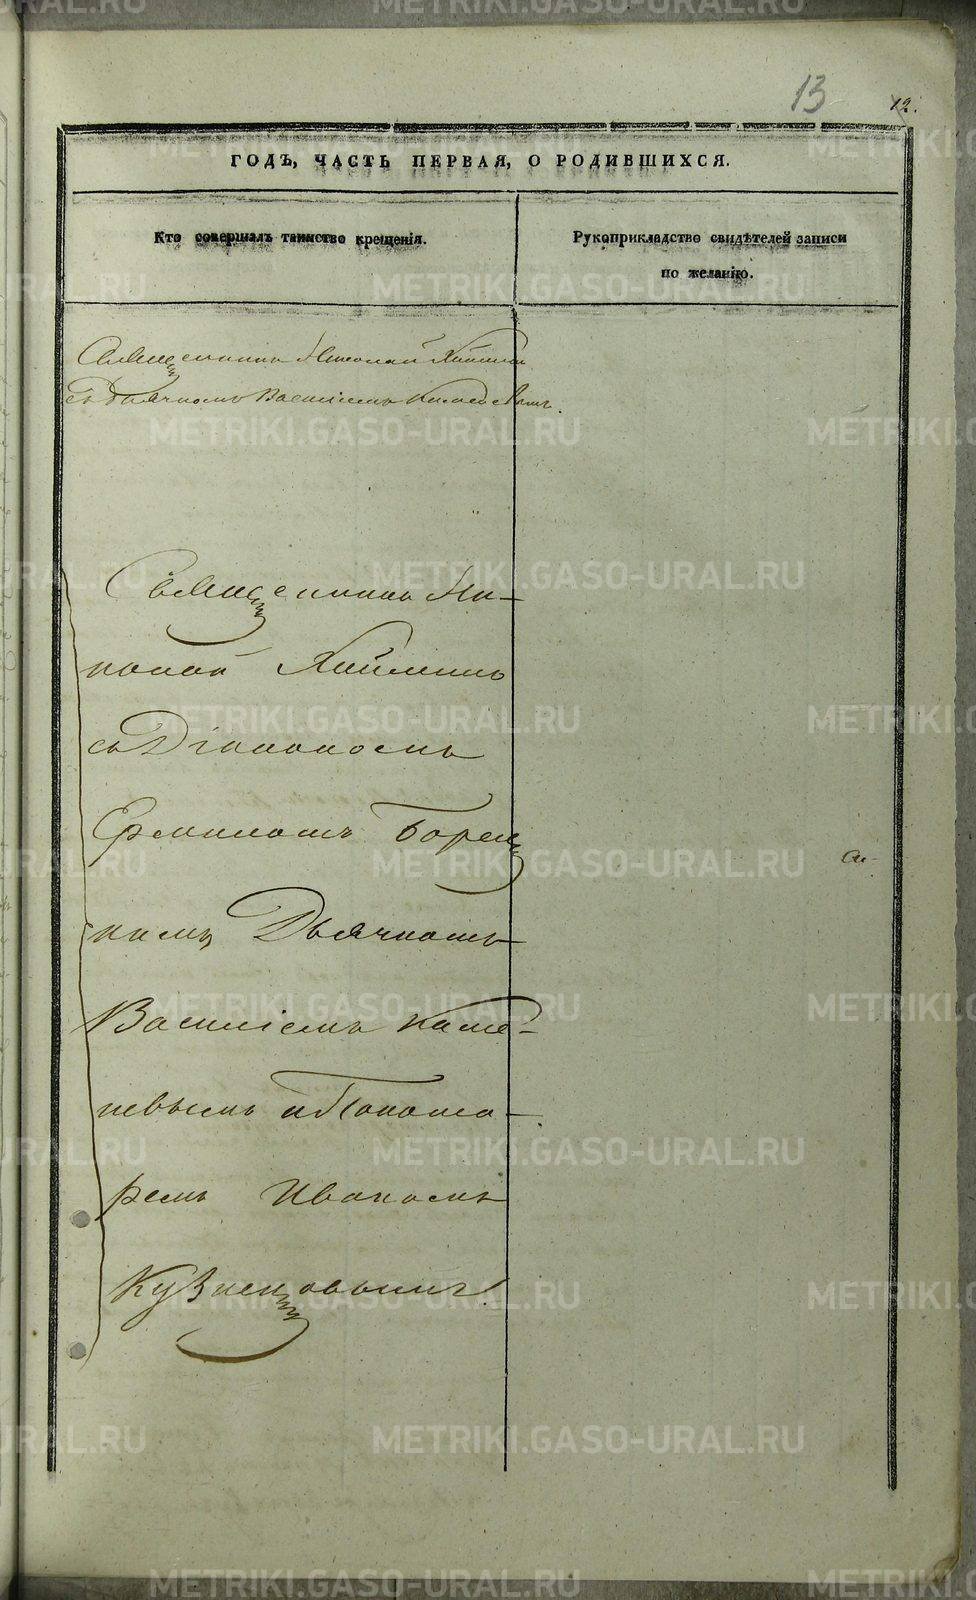 13
12.
ГОДЪ, ЧАСТЬ ПЕРВАЯ, О РОДИВШИХСЯ.
Кто совершалъ таинство крещенія.
Рукоприкладство свидѣтелей записи
по желанію.
Священникъ Николай Хайминъ
съ Дьячкомъ Василіемъ
Священникъ Ни-
колай Хайминъ
съ Діакономъ
Ермиломъ
Дьячкомъ
Василіемъ Каме-
невымъ и Понома-
ремъ Иваномъ
Кузнецовымъ.
METRIKI.GASO-URAL.RU